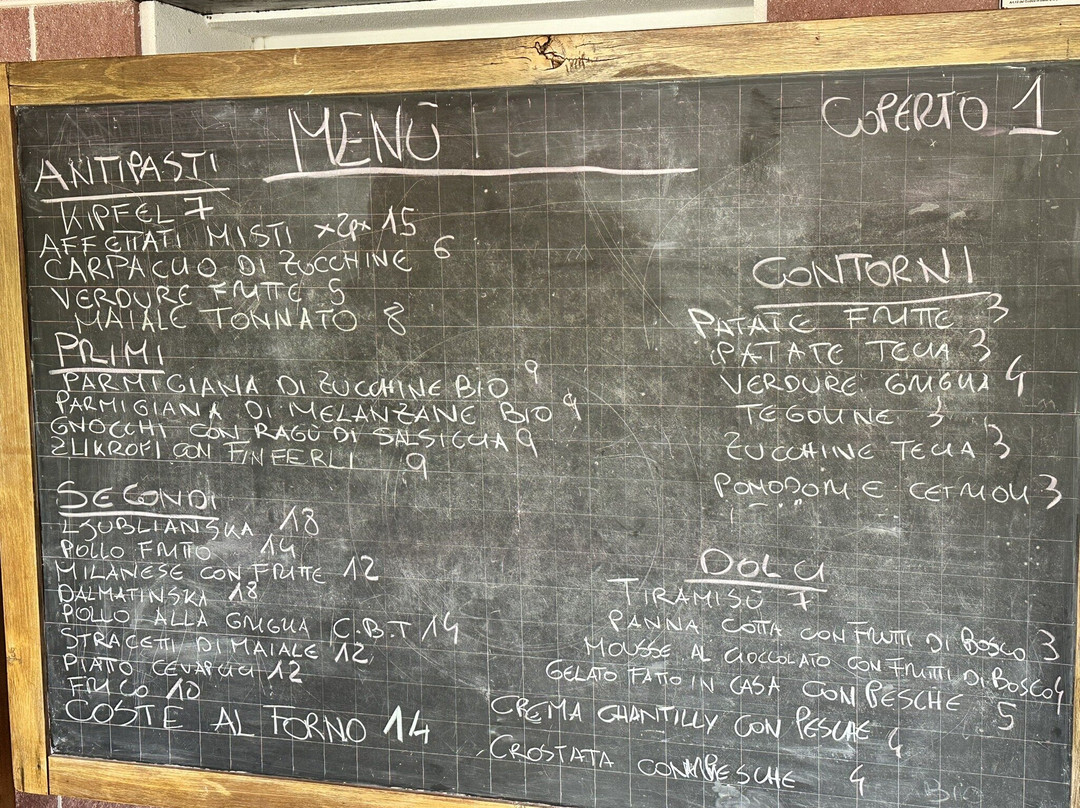 MENÙ
COPERTO 1
ANTIPASTI
KIPFEL 7
AFFETTATI MISTI x2px 15
CARPACCIO DI ZUCCHINE 6
VERDURE FRITTE 5
MAIALE TONNATO 8
PRIMI
PARMIGIANA DI ZUCCHINE BIO 9
PARMIGIANA DI MELANZANE BIO 9
GNOCCHI CON RAGÙ DI SALSICCIA 9
ZLIKROFI CON FINFERLI 9
SECONDI
LJUBLIANSKA 18
POLLO FRITTO 14
MILANESE CON FRITTE 12
DALMATINSKA 18
POLLO ALLA GRIGLIA C.B.T 14
STRACETTI DI MAIALE 12
PIATTO CEVAPCICI 12
FRICO 10
COSTE AL FORNO 14
CONTORNI
PATATE FRITTE 3
PATATE TECIA 3
VERDURE GRIGLIA 4
TEGOLINE 3
ZUCCHINE TECIA 3
POMODORI E CETRIOLI 3
DOLCI
TIRAMISÙ 7
PANNA COTTA CON FRUTTI DI BOSCO 3
MOUSSE AL CIOCCOLATO CON FRUTTI DI BOSCO 4
GELATO FATTO IN CASA CON PESCHE 5
CREMA CHANTILLY CON PESCHE 4
CROSTATA CON PESCHE 4
BIO